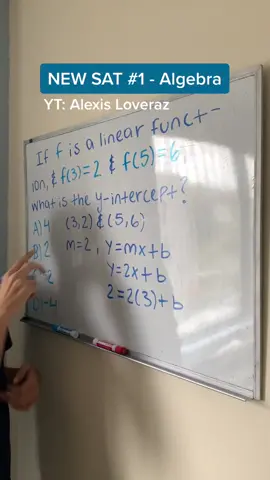 NEW SAT #1 - Algebra
YT: Alexis Loveraz
If f is a linear funct-
ion, & f(3)=2 & f(5)=6,
what is the y-intercept?
A) 4 (3,2) & (5,6)
B) 2 m=2, y=mx+b
2 y=2x+b
D) -4 2=2(3)+b